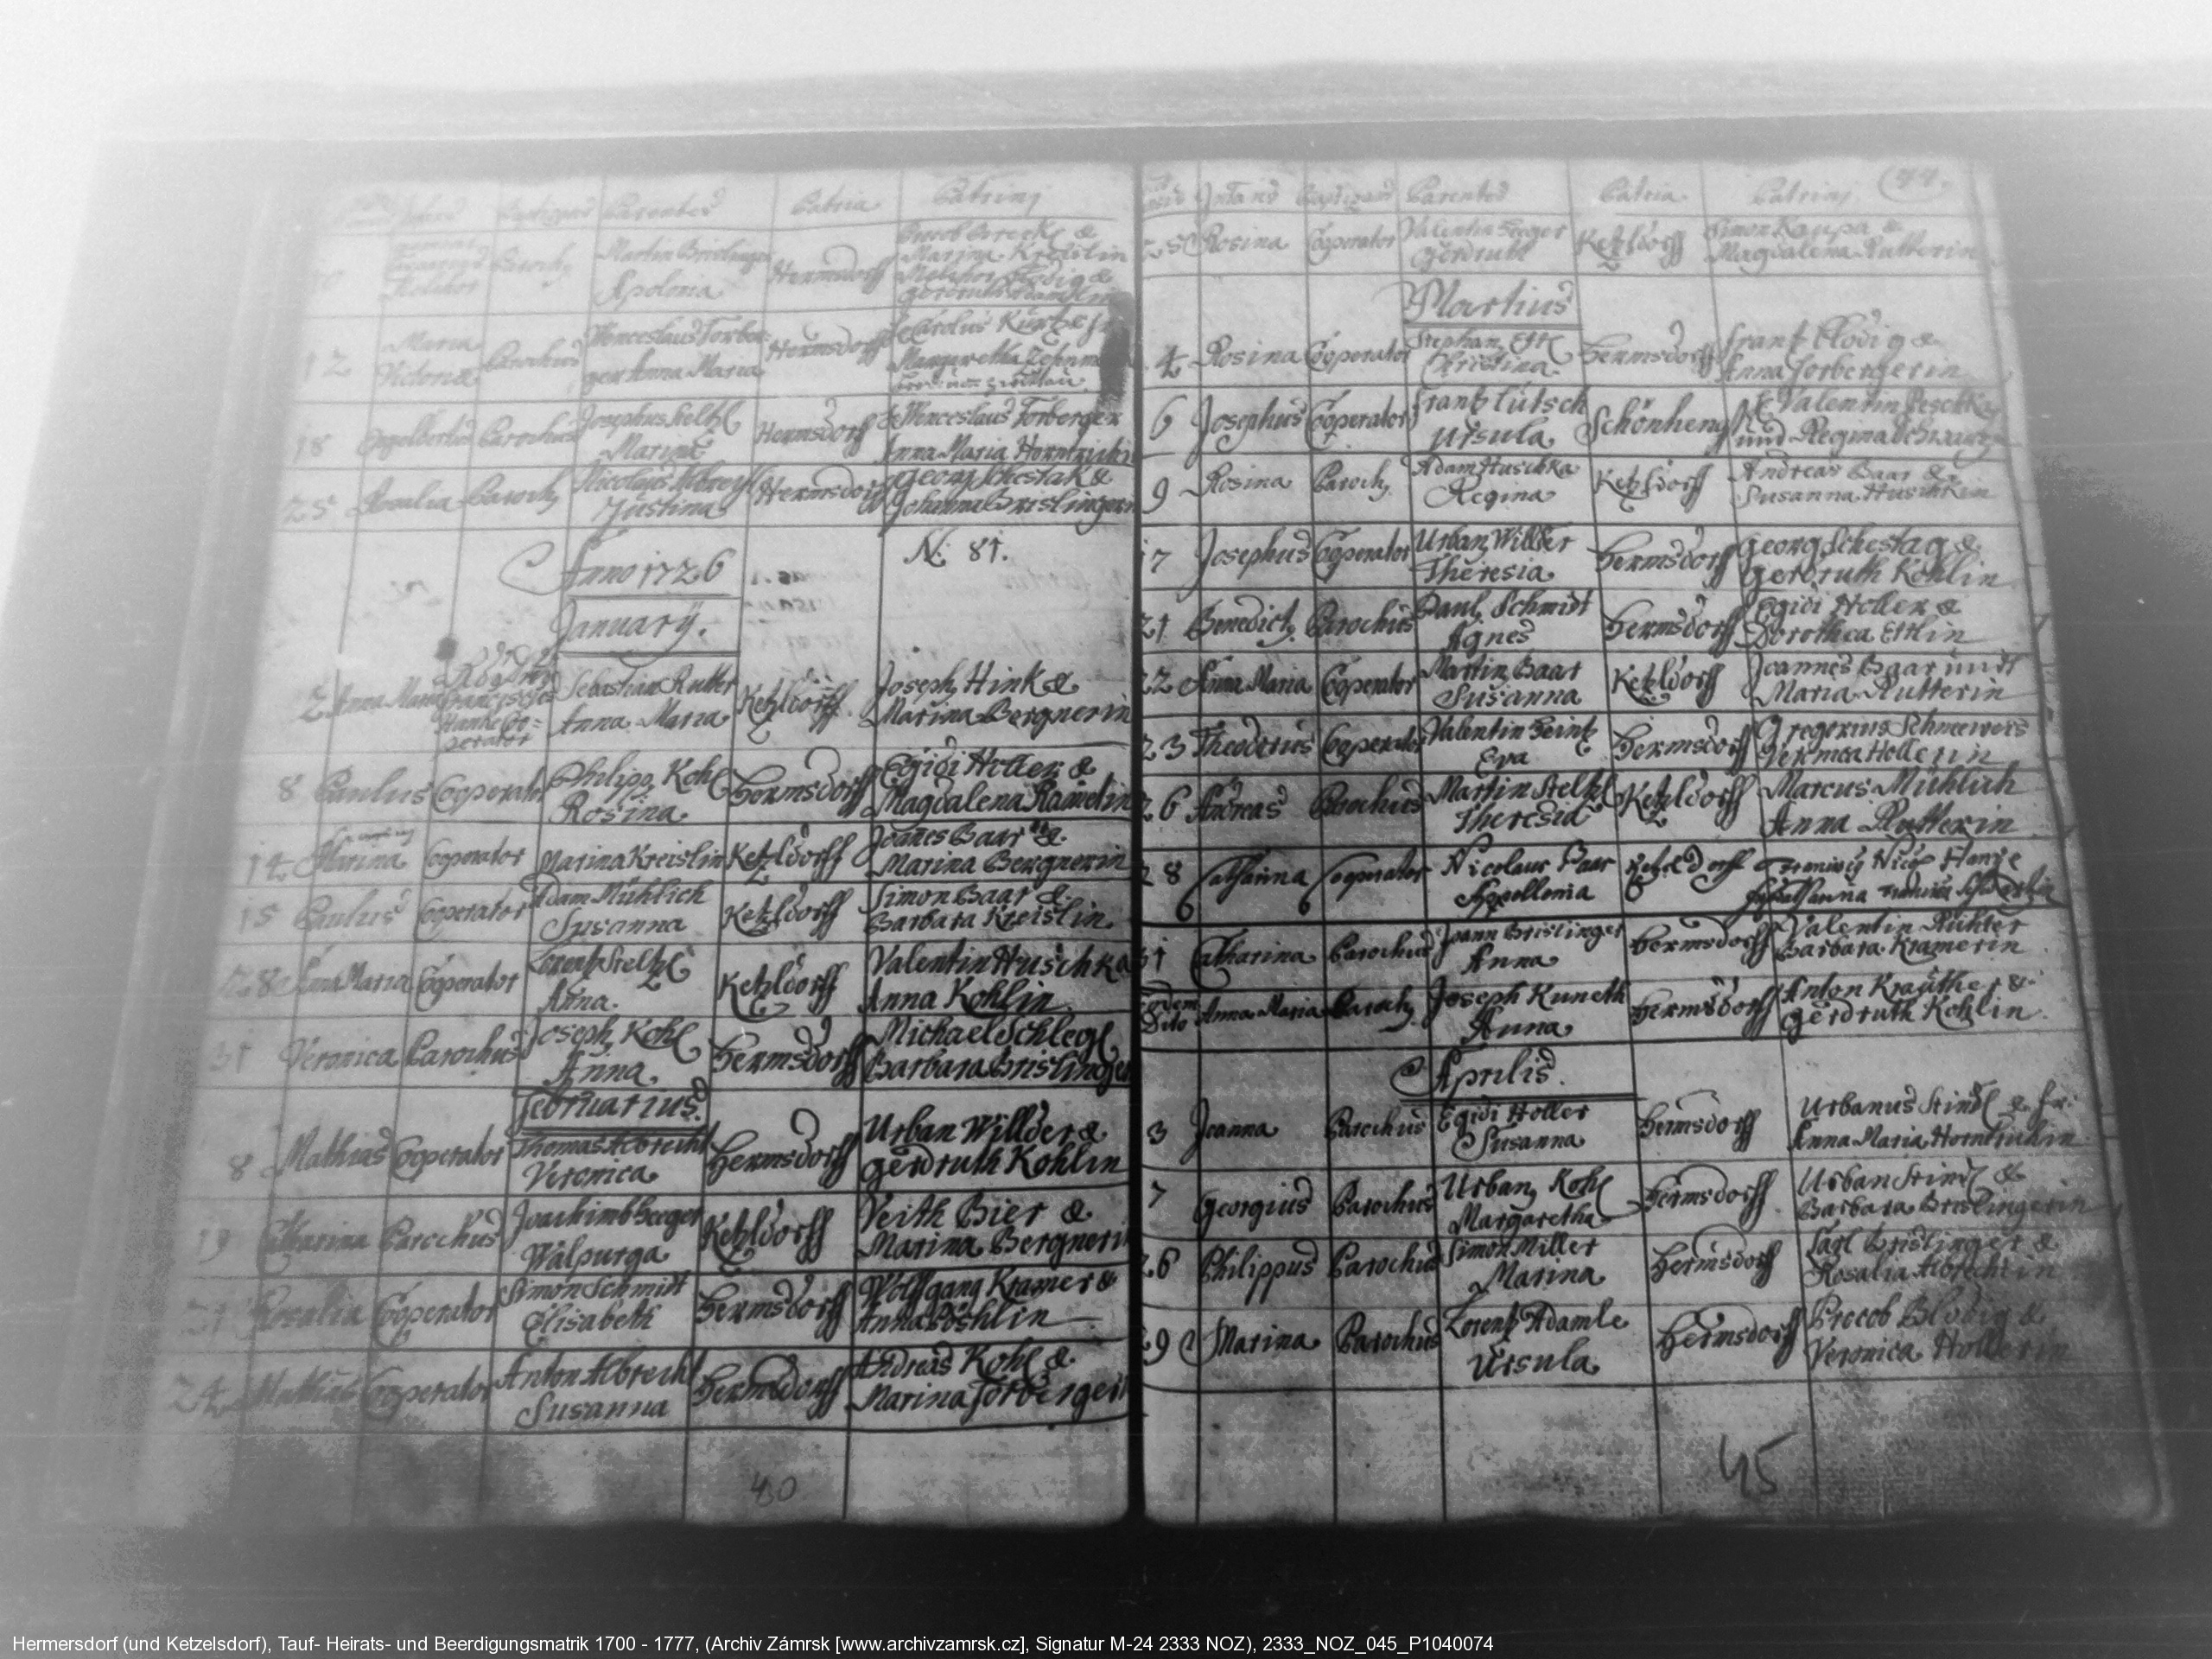 Infans Baptizans Parentes Patria Patrini
Martin Brislinger Apolonia Hermsdorff
Marina Kreislin
Melchior Blodig &
12 Maria Victoria Parochus Wenceslaus Forber=
ger Anna Maria Hermsdorff Carolus Kurtz &
Margaretha
18 Engelbertus Parochus Josephus Steltzl
Marina Hermsdorff Wenceslaus Forberger
Anna Maria
25 Rosalia Paroch, Nicolaus Albrecht
Justina Hermsdorff Georg Schestak &
Johanna Brislingerin
Anno 1726
N: 81.
January.
2 Anna Maria Franciscus
Hanke Co=
perator Sebastian Rutter
Anna Maria Ketzldorff Joseph Hink &
Marina Bergnerin
8 Paulus Cooperator Philipp Kohl
Rosina Hermsdorff Egidi Holler &
Magdalena
14 Marina Cooperator Marina Kreislin Ketzldorff Joanes Baar &
Marina Bergnerin
15 Paulus Cooperator Adam Mühlich
Susanna Ketzldorff Simon Baar &
Barbara Kreislin
28 Anna Maria Cooperator Lorentz Steltzl
Anna. Ketzldorff Valentin Huschka
Anna Kohlin
31 Veronica Parochus Joseph Kohl
Anna Hermsdorff Michael Schlegl
Barbara Brislinger
Februarius.
8 Mathias Cooperator Thomas Albrecht
Veronica Hermsdorff Urban Willder &
Gerdruth Kohlin
19 Catharina Parochus Joachimb Seeger
Walpurga Ketzldorff Veith Bier &
Marina Bergnerin
21 Rosalia Cooperator Simon Schmidt
Elisabeth Hermsdorff Wolffgang Kramer &
Anna Pöschlin
24 Mathias Cooperator Anton Albrecht
Susanna Hermsdorff Andreas Kohl &
Marina Forbergerin
40
Infans Baptizans Parentes Patria Patrini (44.
25 Rosina Cooperator Valentin Seeger
Gerdruth Ketzldorff Simon Kaupa &
Magdalena Rutterin
Martius
4 Rosina Cooperator Stephan Ettl
Christina Hermsdorff Frantz Blodig &
Anna Forbergerin
6 Josephus Cooperator Frantz Lütsch
Ursula Schönheng Valentin Peschke
und Regina
9 Rosina Paroch, Adam Huschka
Regina Ketzldorff Andreas Baar &
Susanna Huschkin
17 Josephus Cooperator Urban Willder
Theresia Hermsdorff Georg Schestag &
Gerdruth Kohlin
21 Benedict, Parochus Paul Schmidt
Agnes Hermsdorff Egidi Holler &
Dorothea Ettlin
22 Anna Maria Cooperator Martin Baar
Susanna Ketzldorff Joannes Baar undt
Maria Rutterin
23 Theodorus Cooperator Valentin Seintz
Eva Hermsdorff Gregorius Schneeweis
Veronica Hollerin
26 Andreas Parochus Martin Steltzl
Theresia Ketzldorff Marcus Mühlich
Anna Rutterin
28 Catharina Cooperator Nicolaus Paar
Appollonia Ketzldorff
31 Catharina Parochus Joann Brislinger
Anna Hermsdorff Valentin Richter
Barbara Kramerin
Eodem
Dito Anna Maria Paroch, Joseph Kuneth
Anna Hermsdorff Anton Krauther &
Gerdruth Kohlin
Aprilis.
3 Joanna Parochus Egidi Holler
Susanna Hermsdorff Urbanus Stindl &
Anna Maria
7 Georgius Parochus Urban Kohl
Margaretha Hermsdorff Urban Stindl &
Barbara Brislingerin
26 Philippus Parochus Simon Miller
Marina Hermsdorff Carl Brislinger &
Rosalia Albrechtin
29 Marina Parochus Lorentz Adamle
Ursula Hermsdorff Procob Blodig &
Veronica Hollerin
45
Hermersdorf (und Ketzelsdorf), Tauf- Heirats- und Beerdigungsmatrik 1700 - 1777, (Archiv Zámrsk [www.archivzamrsk.cz], Signatur M-24 2333 NOZ), 2333_NOZ_045_P1040074